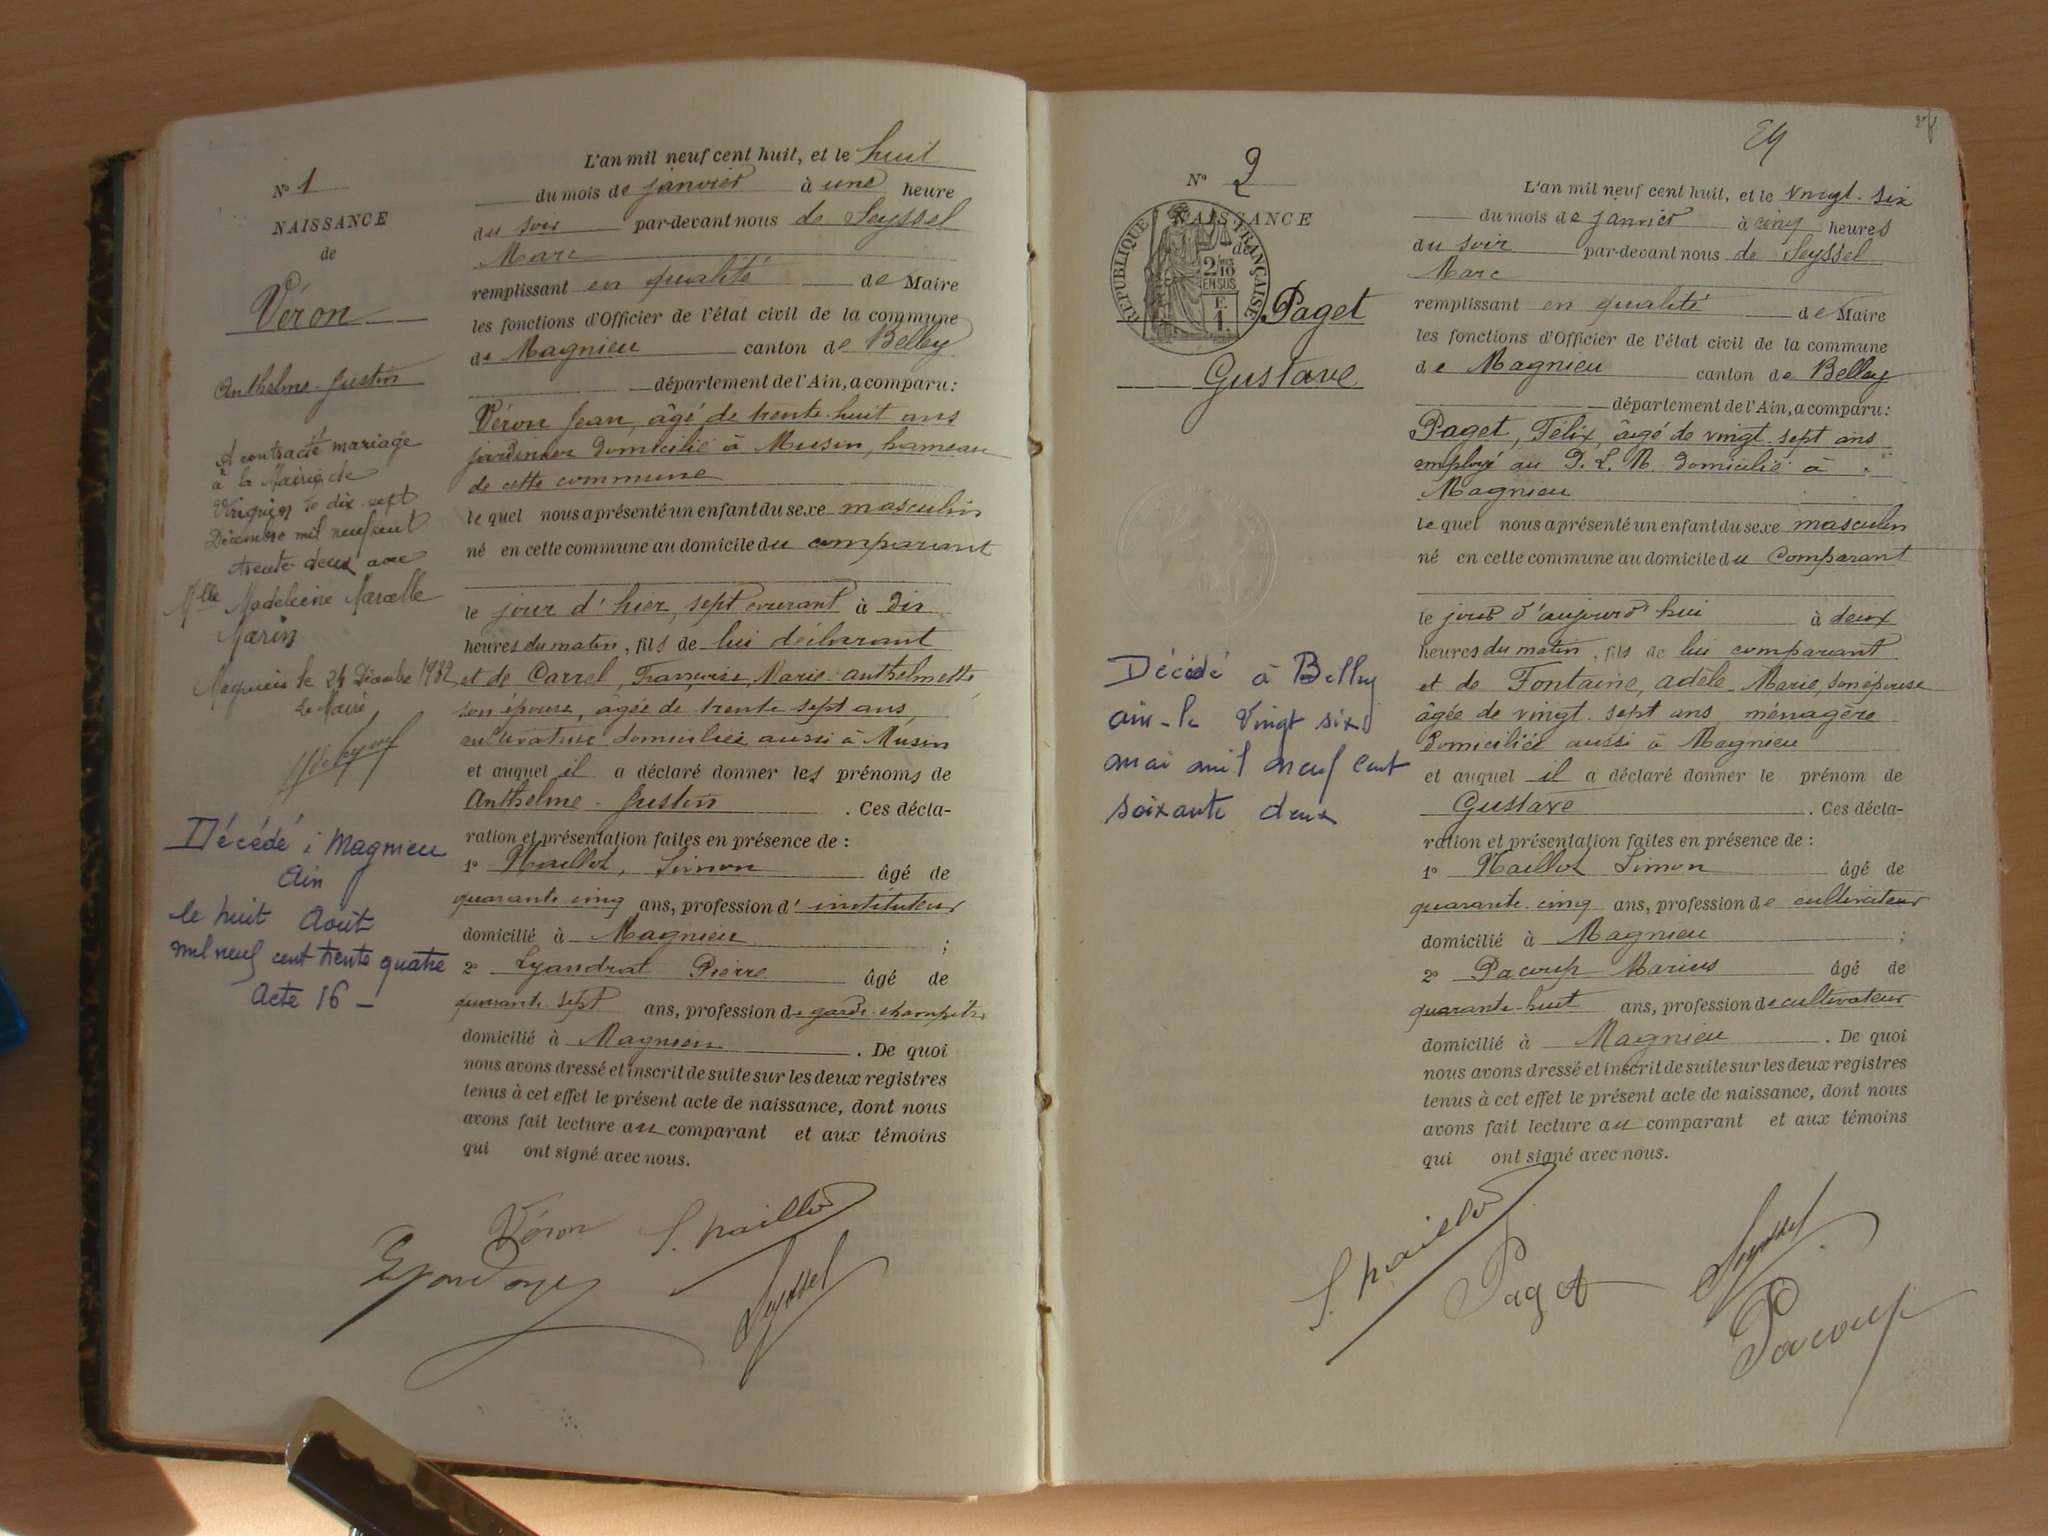 Nº 1
NAISSANCE
de
Véron
Anthelme-Justin
A contracté mariage
à la Mairie de
Virignin le dix sept
Décembre mil neuf cent
trente deux avec
Mlle Madeleine Marcelle
Marin
Magnieu le 24 Décembre 1932
Le Maire
Décédé à Magnieu
Ain
le huit Août
mil neuf cent trente quatre
Acte 16 -
L'an mil neuf cent huit, et le huit
du mois de janvier à une heure
du soir par-devant nous de Seyssel
Marc
remplissant en qualité de Maire
les fonctions d'Officier de l'état civil de la commune
de Magnieu canton de Belley
département de l'Ain, a comparu:
Véron Jean, âgé de trente-huit ans
jardinier domicilié à Musin, hameau
de cette commune
lequel nous a présenté un enfant du sexe masculin
né en cette commune au domicile du comparant
le jour d'hier, sept courant à dix
heures du matin, fils de lui déclarant
et de Carrel, Françoise Marie-Anthelmette
son épouse, âgée de trente sept ans,
cultivatrice domiciliée aussi à Musin
et auquel il a déclaré donner les prénoms de
Anthelme-Justin . Ces décla-
ration et présentation faites en présence de:
1º Naillot, Simon âgé de
quarante cinq ans, profession d'instituteur
domicilié à Magnieu ;
2º Lyandrat Pierre âgé de
quarante sept ans, profession de garde-champêtre
domicilié à Magnieu . De quoi
nous avons dressé et inscrit de suite sur les deux registres
tenus à cet effet le présent acte de naissance, dont nous
avons fait lecture au comparant et aux témoins
qui ont signé avec nous.
Véron S. Naillot
Seyssel
Nº 2
NAISSANCE
de
RÉPUBLIQUE FRANÇAISE
2/10
EN SUS
F.
1.
Paget
Gustave
Décédé à Belley
ain - le vingt six
mai mil neuf cent
soixante deux
L'an mil neuf cent huit, et le vingt-six
du mois de janvier à cinq heures
du soir par-devant nous de Seyssel
Marc
remplissant en qualité de Maire
les fonctions d'Officier de l'état civil de la commune
de Magnieu canton de Belley
département de l'Ain, a comparu:
Paget, Félix, âgé de vingt-sept ans
employé au P. L. M. domicilié à
Magnieu
lequel nous a présenté un enfant du sexe masculin
né en cette commune au domicile du Comparant
le jour d'aujourd'hui à deux
heures du matin, fils de lui comparant
et de Fontaine, Adèle-Marie, son épouse
âgée de vingt-sept ans, ménagère
domiciliée aussi à Magnieu
et auquel il a déclaré donner le prénom de
Gustave . Ces décla-
ration et présentation faites en présence de:
1º Naillot Simon âgé de
quarante-cinq ans, profession de cultivateur
domicilié à Magnieu ;
2º Pacoup Marius âgé de
quarante-huit ans, profession de cultivateur
domicilié à Magnieu . De quoi
nous avons dressé et inscrit de suite sur les deux registres
tenus à cet effet le présent acte de naissance, dont nous
avons fait lecture au comparant et aux témoins
qui ont signé avec nous.
S. Naillot
Paget
Seyssel
Pacoup